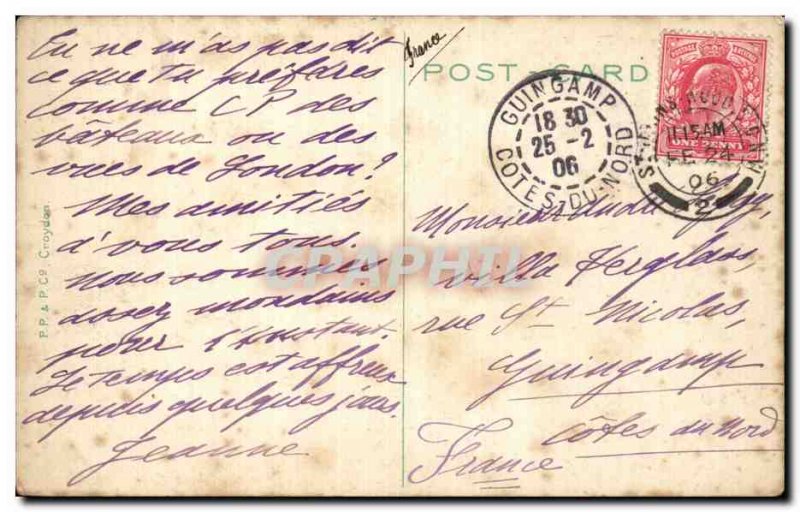 Tu ne m'as pas dit
ce que tu préfères
comme CP des
bâteaux ou des
vues de London?
Mes amitiés
à vous tous.
nous sommes
assez mondains
pour l'instant.
Le temps est affreux
depuis quelques jours.
Jeanne
P.P. & P. Co. Croydon
France
POST-CARD
GUINGAMP
18 30
25 -2
06
COTES-DU-NORD
POSTAGE REVENUE
ONE PENNY
11 15 AM
FE 24
06
N.W.
2
Monsieur André
villa Kerglass,
rue St Nicolas,
Guingamp
Côtes du Nord
France
CPAPHIL